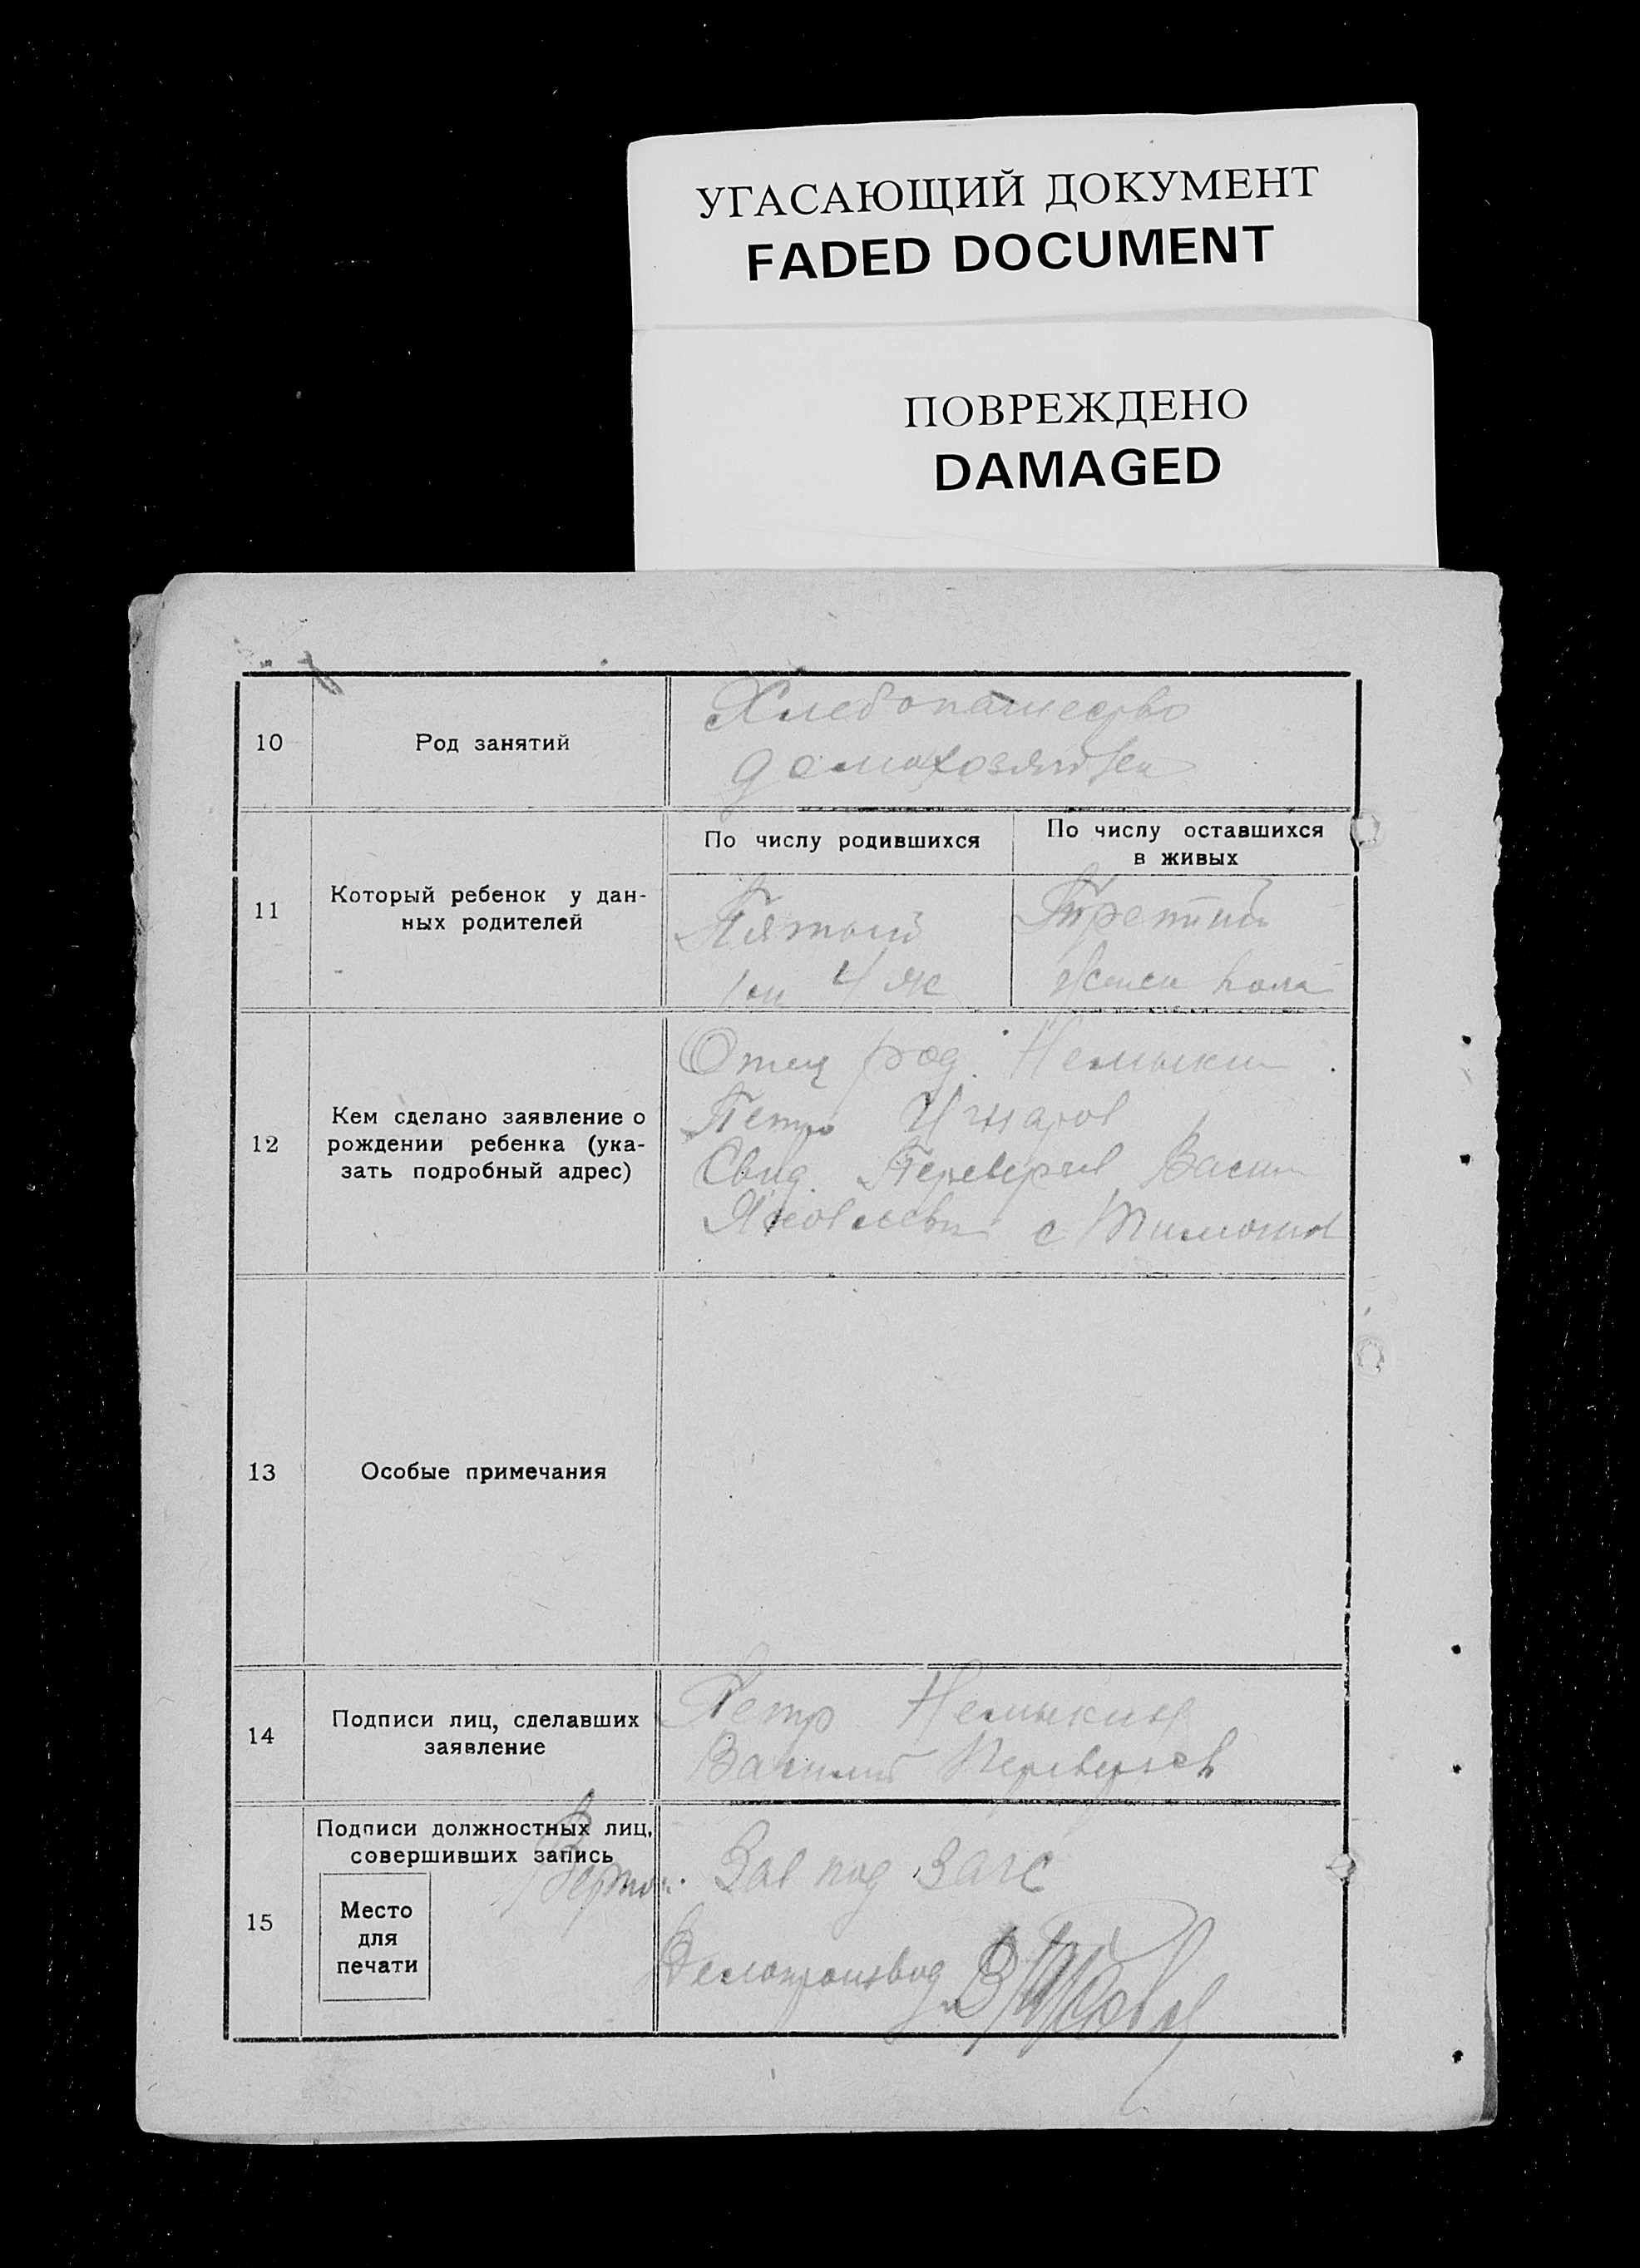 УГАСАЮЩИЙ ДОКУМЕНТ
FADED DOCUMENT
ПОВРЕЖДЕНО
DAMAGED
10
Род занятий
Хлебопашество
домохозяйка
11
Который ребенок у дан-
ных родителей
По числу родившихся
По числу оставшихся
в живых
Пятый
1 м 4 ж
Третий
женск пола
12
Кем сделано заявление о
рождении ребенка (ука-
зать подробный адрес)
Отец род. Немыкин
Петр
Свид. Переверзев Васил
Яковлевич с
13
Особые примечания
14
Подписи лиц, сделавших
заявление
Петр Немыкин
Василий Переверзев
15
Подписи должностных лиц,
совершивших запись
Место
для
печати
Верно:
Зав под ЗАГС
Делопроизвод